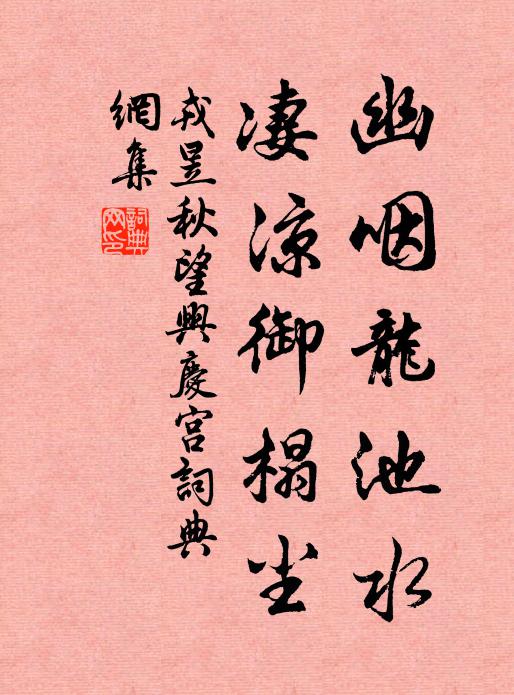 幽咽龍池水
凄涼御榻尘
戎昱秋望興慶宫詞典
網集
詞典网印